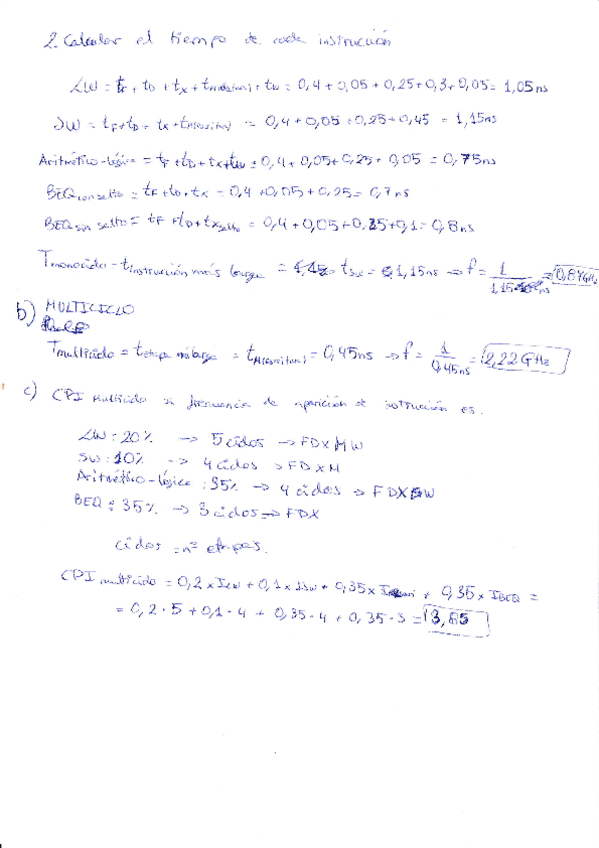 2. Calcular el tiempo de cada instrucción
LW = tF + tD + tX + tM(lectura) + tW = 0,4 + 0,05 + 0,25 + 0,3 + 0,05 = 1,05 ns
SW = tF + tD + tX + tM(escritura) = 0,4 + 0,05 + 0,25 + 0,45 = 1,15 ns
Aritmético-lógica = tF + tD + tX + tW = 0,4 + 0,05 + 0,25 + 0,05 = 0,75 ns
BEQ con salto = tF + tD + tX = 0,4 + 0,05 + 0,25 = 0,7 ns
BEQ sin salto = tF + tD + tX salto = 0,4 + 0,05 + 0,25 + 0,1 = 0,8 ns
Tmonociclo = t instrucción más larga = tSW = 1,15 ns → f = 1 / 1,15 ns = 0,87 GHz
b) MULTICICLO
Tmulticiclo = t etapa más larga = tM(escritura) = 0,45 ns → f = 1 / 0,45 ns = 2,22 GHz
c) CPI multiciclo si frecuencia de aparición de instrucción es:
LW: 20% → 5 ciclos → FDXMW
SW: 10% → 4 ciclos → FDXM
Aritmético-lógica: 35% → 4 ciclos → FDXW
BEQ: 35% → 3 ciclos → FDX
ciclos = nº etapas.
CPI multiciclo = 0,2 x ILW + 0,1 x ISW + 0,35 x + 0,35 x IBEQ =
= 0,2 · 5 + 0,1 · 4 + 0,35 · 4 + 0,35 · 3 = 3,85